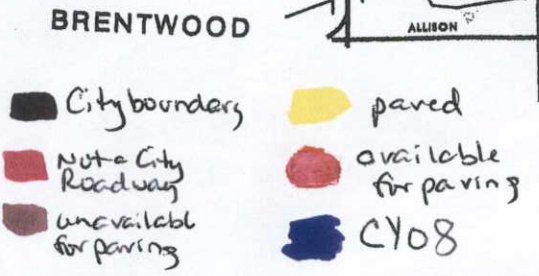 BRENTWOOD
ALLISON
City boundery
Not a City
Roadway
unavailabl
for paving
paved
available
for paving
CY08